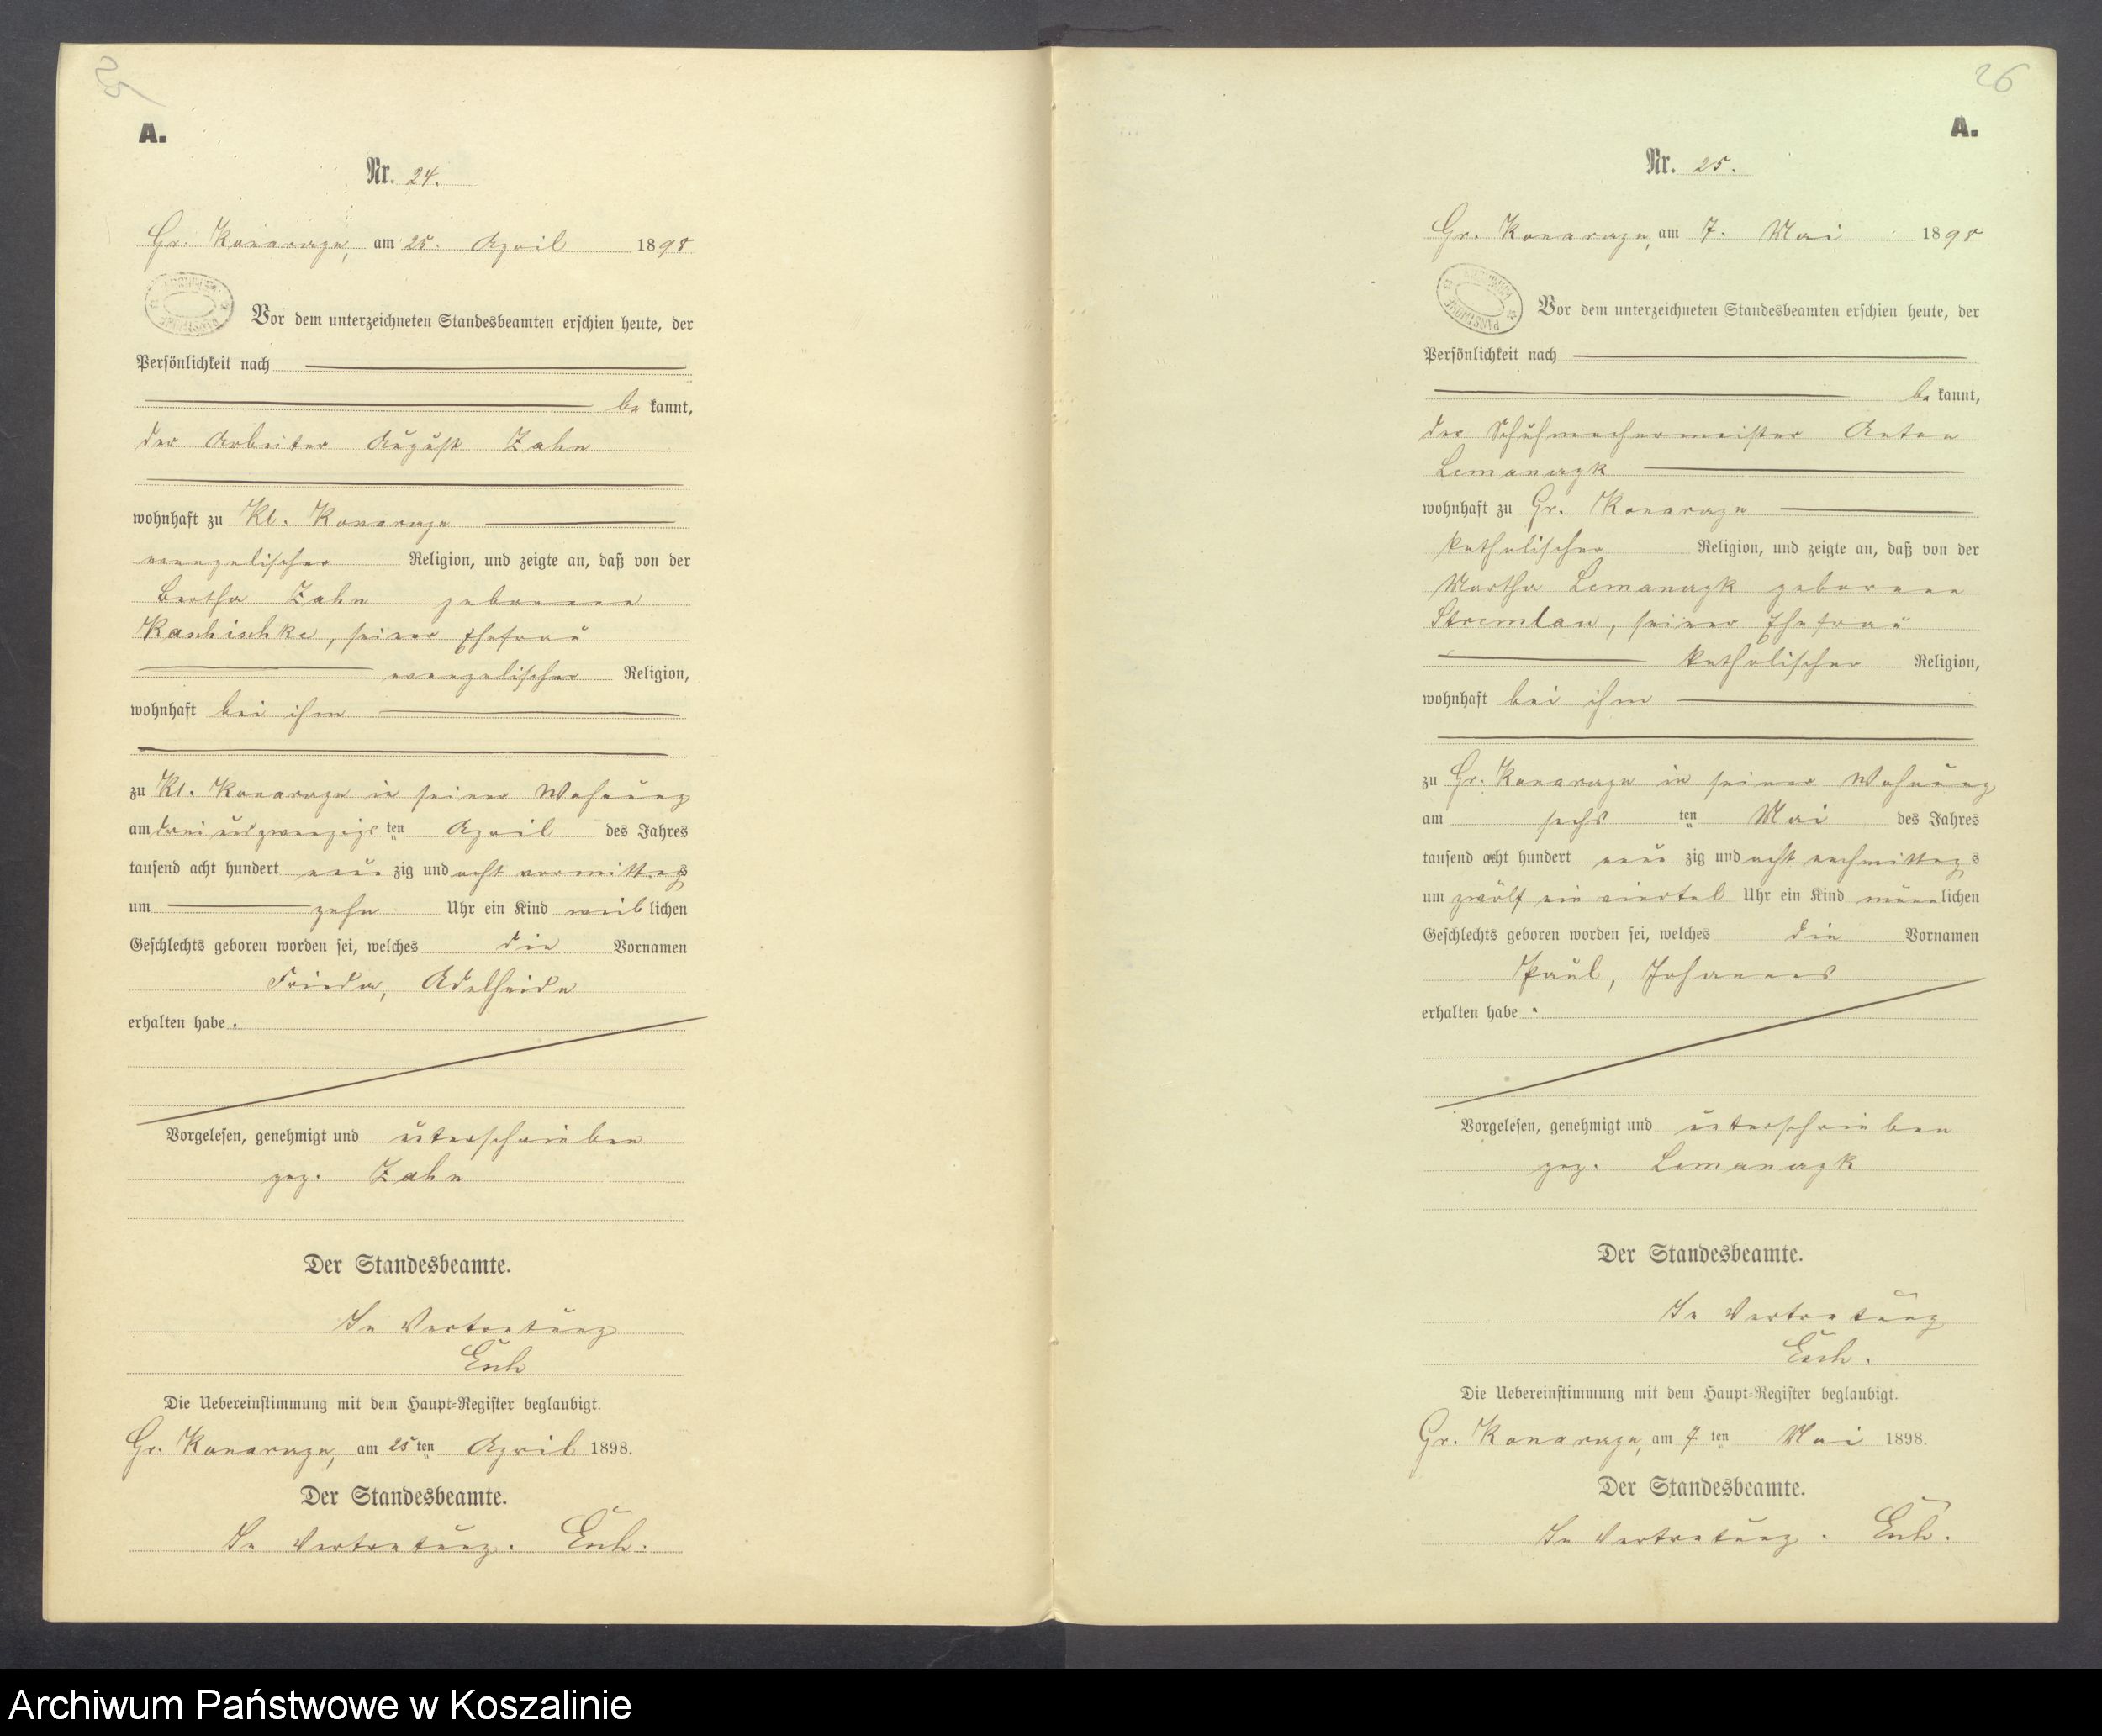 25
A.
Nr. 24.
Gr. Konarczyn, am 25. April 1898
Vor dem unterzeichneten Standesbeamten erschien heute, der
Persönlichkeit nach
be kannt,
der Arbeiter August Zahn
wohnhaft zu Kl. Konarczyn
evangelischer Religion, und zeigte an, daß von der
Bertha Zahn geborenen
Kaschischke, seiner Ehefrau
evangelischer Religion,
wohnhaft bei ihm
zu Kl. Konarczyn in seiner Wohnung
am dreiundzwanzigsten April des Jahres
tausend acht hundert neun zig und acht vormittags
um zehn Uhr ein Kind weiblichen
Geschlechts geboren worden sei, welches die Vornamen
Frieda, Adelheide
erhalten habe.
Vorgelesen, genehmigt und unterschrieben
gez. Zahn
Der Standesbeamte.
In Vertretung
Die Uebereinstimmung mit dem Haupt-Register beglaubigt.
Gr. Konarczyn, am 25 ten April 1898.
Der Standesbeamte.
In Vertretung.
26
A.
Nr. 25.
Gr. Konarczyn, am 7. Mai 1898
Vor dem unterzeichneten Standesbeamten erschien heute, der
Persönlichkeit nach
be kannt,
der Schuhmachermeister Anton
Lemanczyk
wohnhaft zu Gr. Konarczyn
katholischer Religion, und zeigte an, daß von der
Martha Lemanczyk geborenen
Stremlau, seiner Ehefrau
katholischer Religion,
wohnhaft bei ihm
zu Gr. Konarczyn in seiner Wohnung
am sechs ten Mai des Jahres
tausend acht hundert neun zig und acht nachmittags
um zwölf ein viertel Uhr ein Kind männlichen
Geschlechts geboren worden sei, welches die Vornamen
Paul, Johannes
erhalten habe.
Vorgelesen, genehmigt und unterschrieben
gez. Lemanczyk
Der Standesbeamte.
In Vertretung
Die Uebereinstimmung mit dem Haupt-Register beglaubigt.
Gr. Konarczyn, am 7 ten Mai 1898.
Der Standesbeamte.
In Vertretung.
Archiwum Państwowe w Koszalinie